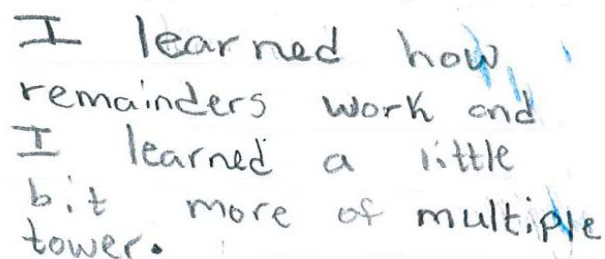 I learned how
remainders work and
I learned a little
bit more of multiple
tower.